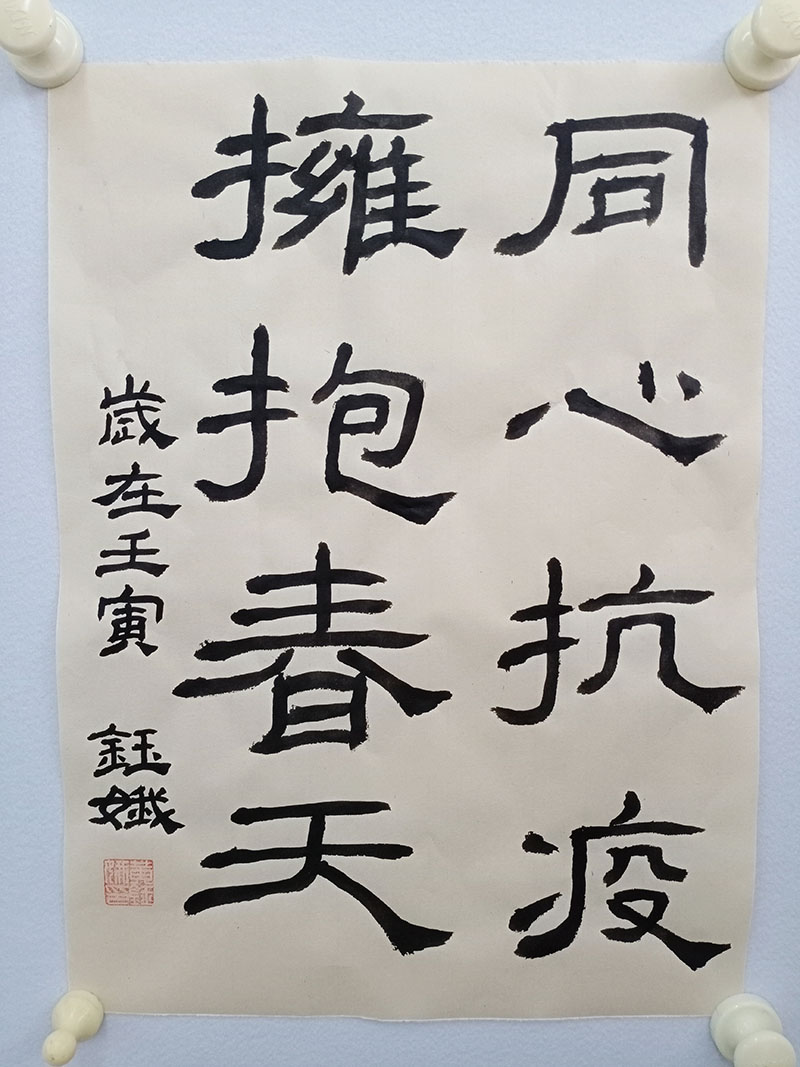 同心抗疫
擁抱春天
歲在壬寅 鈺孅